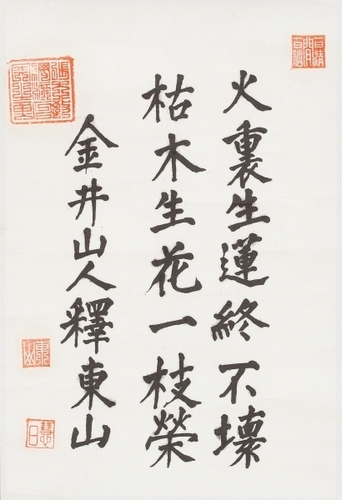 火裏生蓮終不壞
枯木生花一枝榮
金井山人釋東山